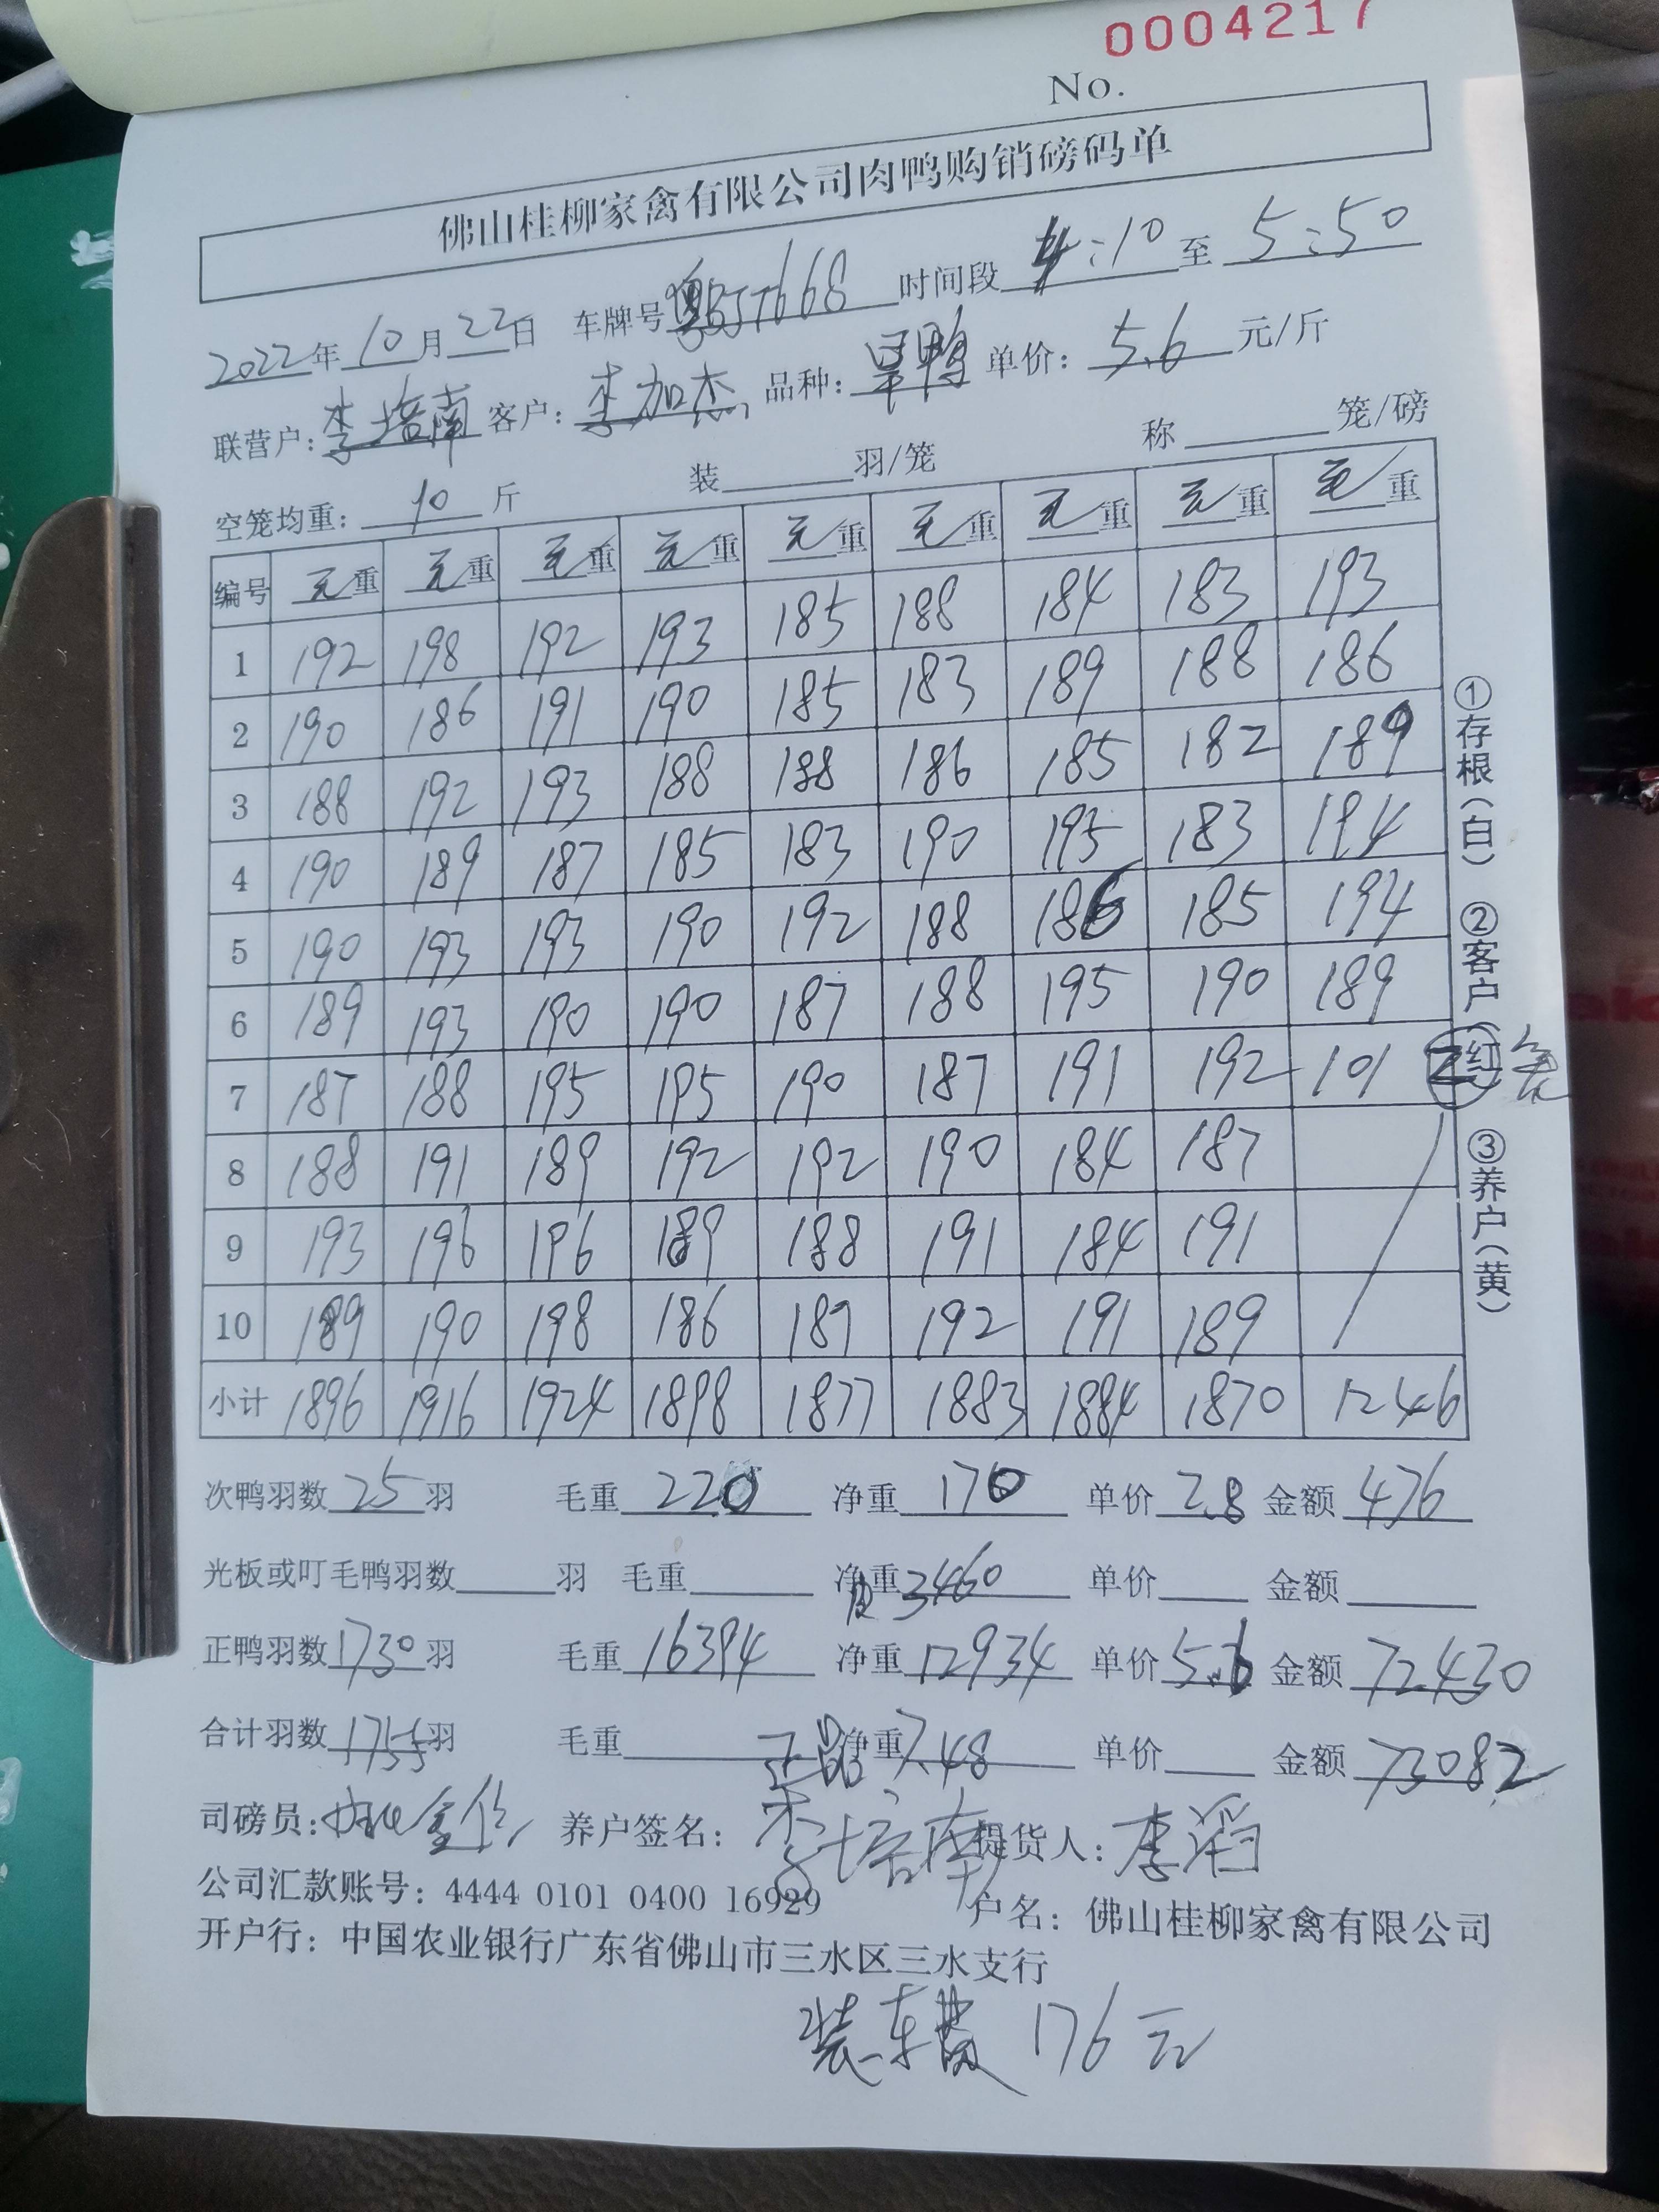 0004217
No.
佛山桂柳家禽有限公司肉鸭购销磅码单
2022年10月22日 车牌号 粤 668 时间段 4:10 至 5:50
联营户: 李培南 客户: 李加杰 品种: 鸭 单价: 5.6 元/斤
空笼均重: 10 斤 装 羽/笼 称 笼/磅
编号 毛重 毛重 毛重 毛重 毛重 毛重 毛重 毛重 毛重
1 192 198 192 193 185 188 184 183 193
2 190 186 191 190 185 183 189 188 186
3 188 192 193 188 188 186 185 182 189
4 190 189 187 185 183 190 195 183 194
5 190 193 193 190 192 188 186 185 194
6 189 193 190 190 187 188 195 190 189
7 187 188 195 195 190 187 191 192 101
8 188 191 189 192 192 190 184 187
9 193 196 196 189 188 191 184 191
10 189 190 198 186 187 192 191 189
小计 1896 1916 1924 1898 1877 1883 1884 1870 1246
①存根(白) ②客户(红) ③养户(黄)
次鸭羽数 25 羽 毛重 220 净重 170 单价 2.8 金额 476
光板或叮毛鸭羽数 羽 毛重 净重 皮3460 单价 金额
正鸭羽数 1730 羽 毛重 16394 净重 12934 单价 5.6 金额 72430
合计羽数 1755 羽 毛重 正品 净重 7.48 单价 金额 73082
司磅员: 养户签名: 李培南 提货人: 李滔
公司汇款账号: 4444 0101 0400 16929 户名: 佛山桂柳家禽有限公司
开户行: 中国农业银行广东省佛山市三水区三水支行
装车费 176元